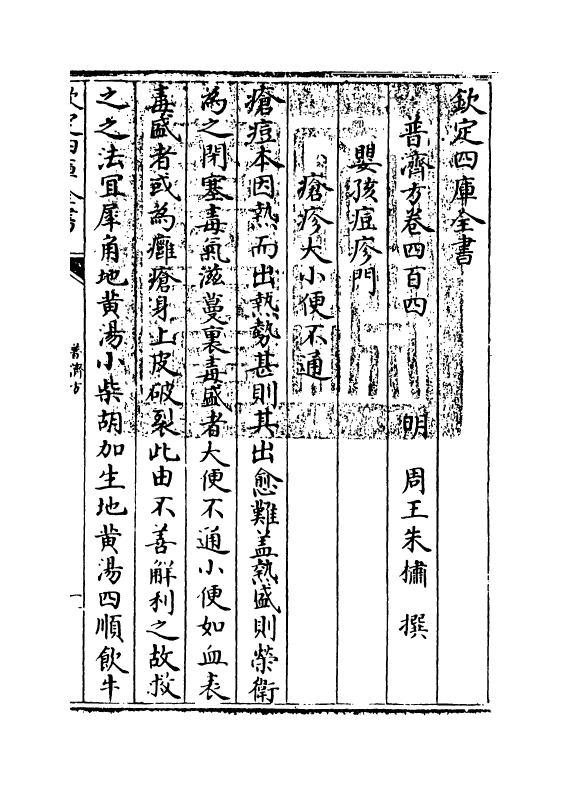 欽定四庫全書
普濟方卷四百四　明　周王朱橚　撰
嬰孩痘疹門
瘡疹大小便不通
瘡痘本因熱而出熱勢甚則其出愈難盖熱盛則榮衛
為之閉塞毒氣滋蔓裏毒盛者大便不通小便如血表
毒盛者或為癰瘡身上皮破裂此由不善解利之故救
之之法宜犀角地黄湯小柴胡加生地黄湯四順飲牛
普濟方
一